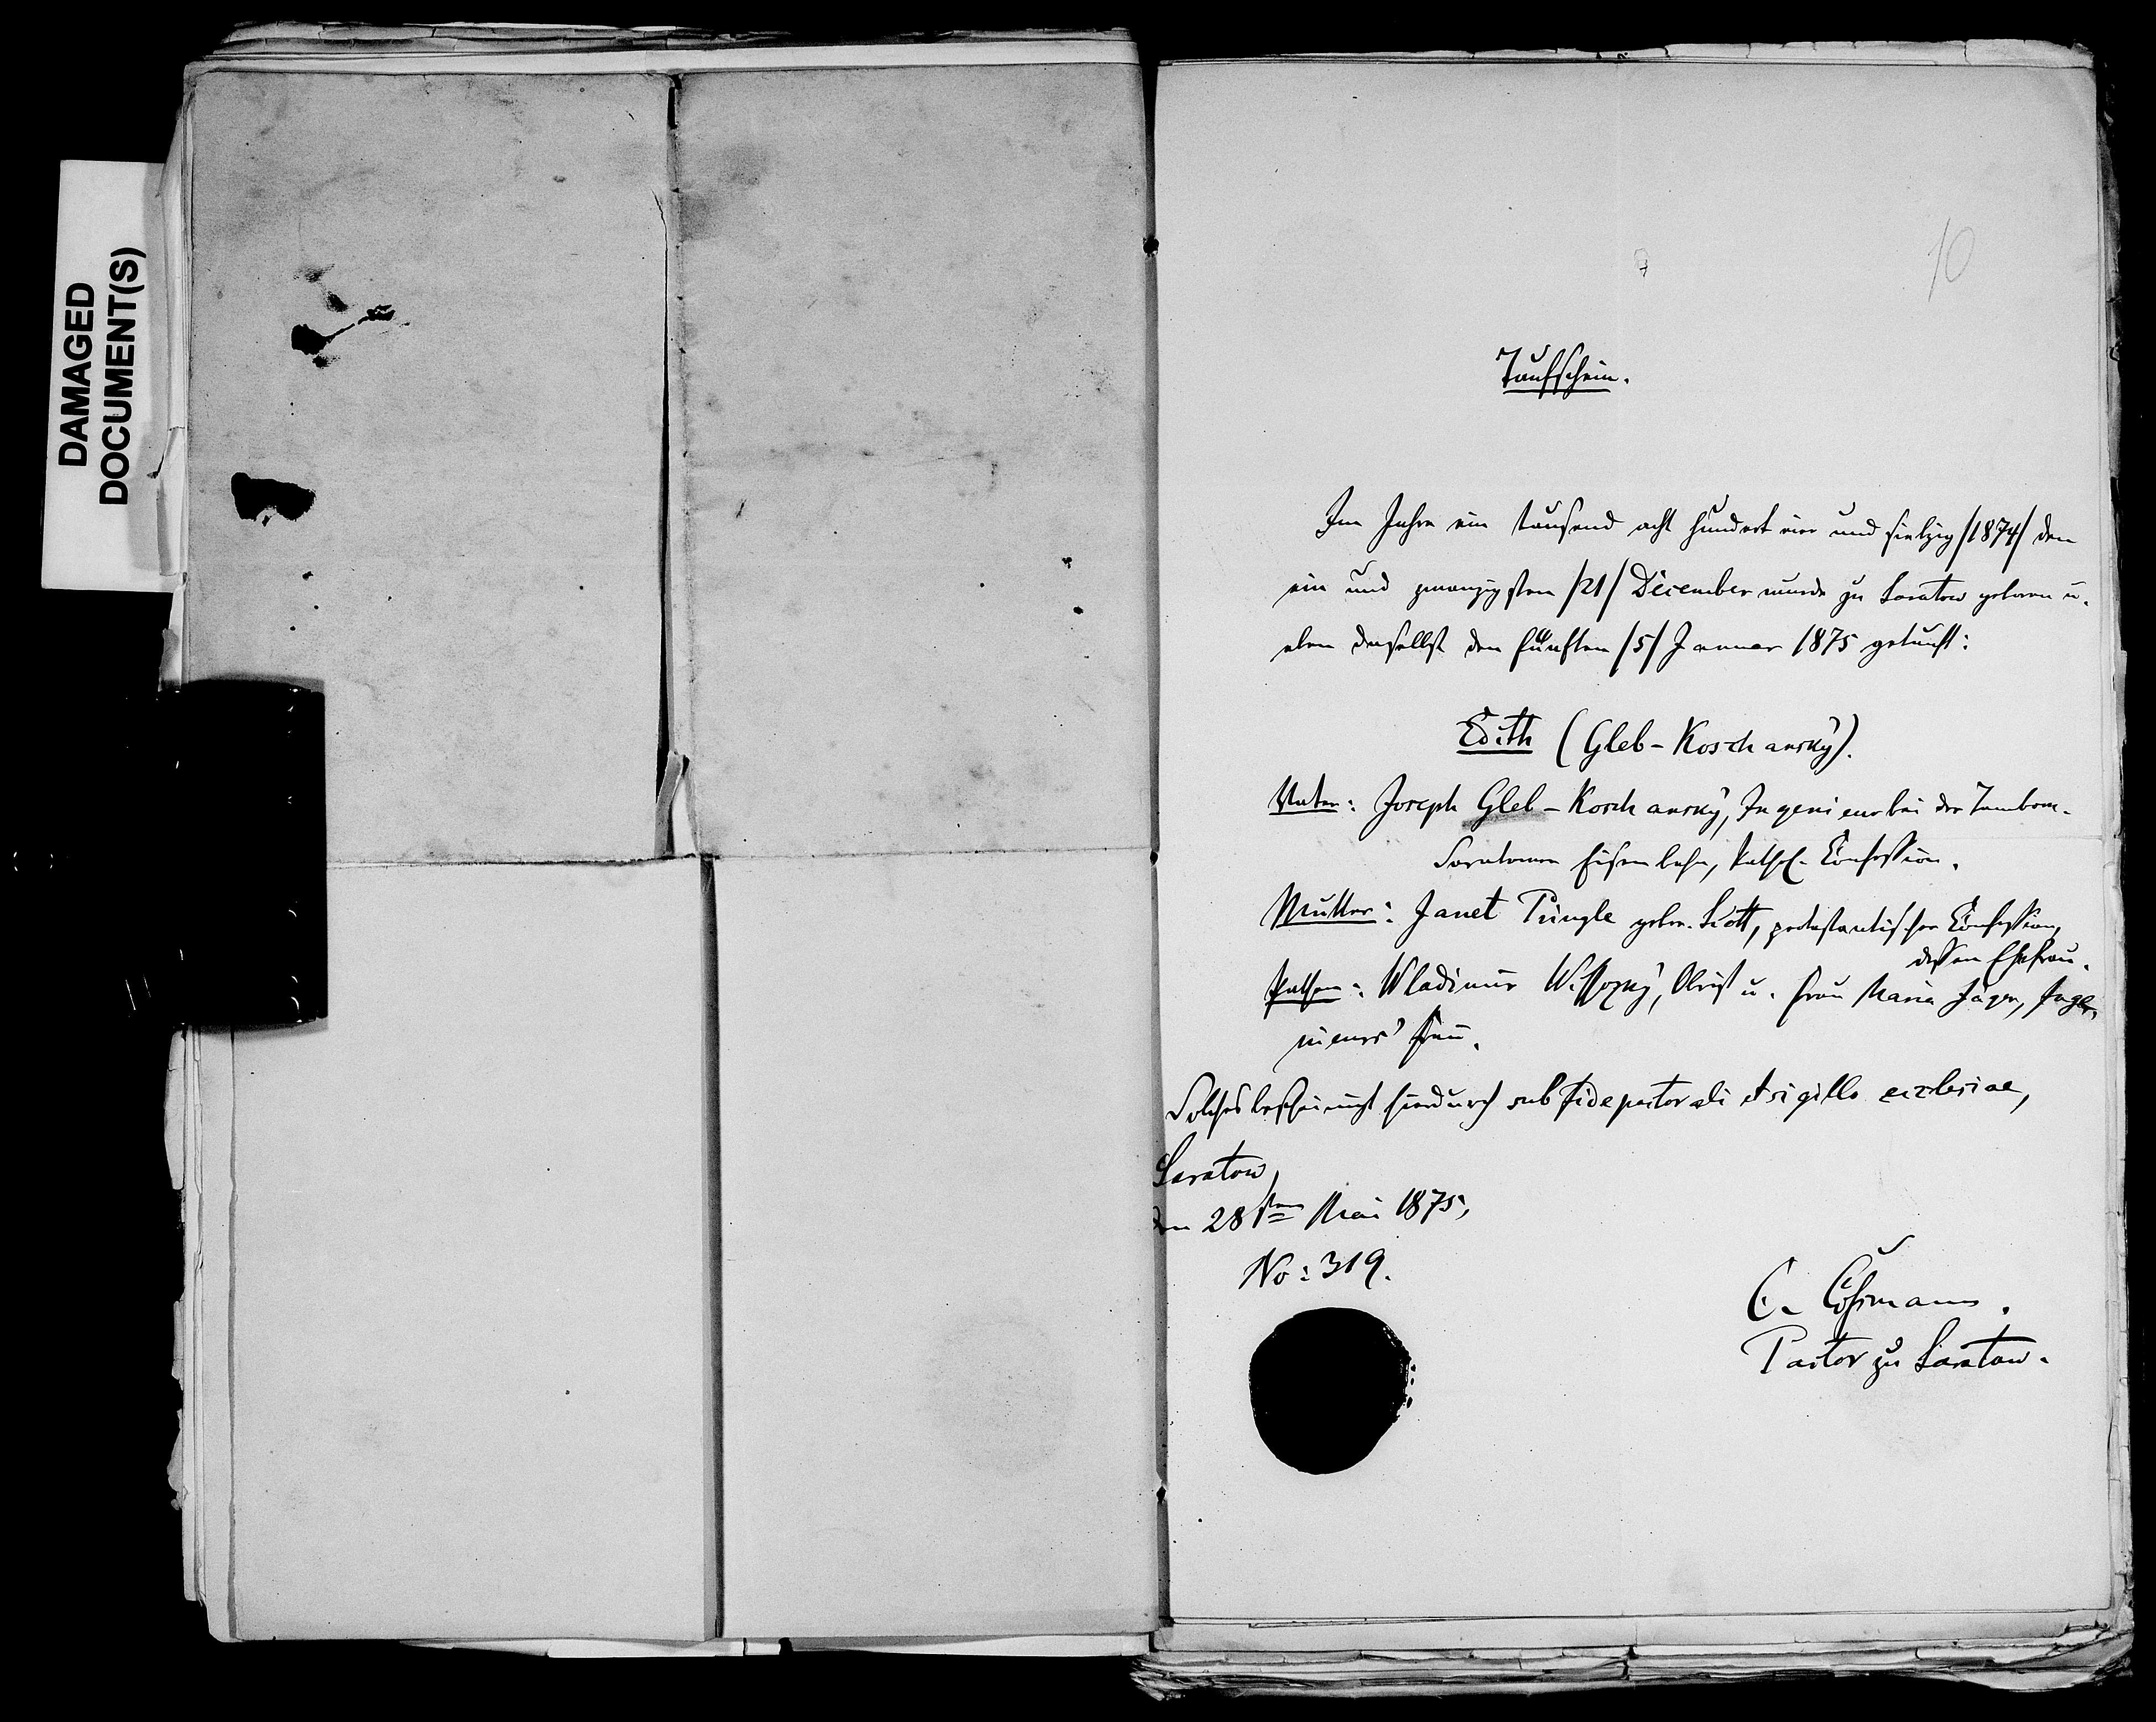 DAMAGED
DOCUMENT(S)
10
Taufschein.
Im Jahre ein tausend acht hundert vier und siebzig /1874/ den
ein und zwanzigsten /21/ December wurde zu Saratow geboren u.
eben daselbst den fünften /5/ Januar 1875 getauft:
Edith (Gleb-Koschansky).
Vater: Joseph Gleb-Koschansky, Ingenieur bei der Tambow-
Saratower Eisenbahn, kathol. Confession.
Mutter: Janet Pringle gebor. Scott, protestantischer Confession,
dessen Ehefrau.
Pathen: Wladimir Wissozky, Obrist u. Frau Maria Jäger, Inge-
nieurs' Frau.
Solches bescheinigt hierdurch sub fide pastorali et sigillo ecclesiae,
Saratow,
den 28sten Mai 1875,
No: 319.
C. Coßmann.
Pastor zu Saratow.